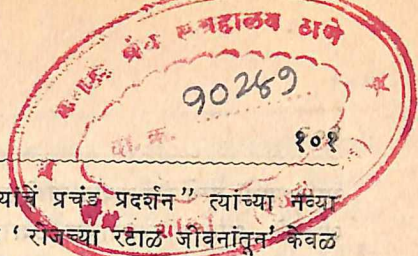 मराठी ग्रंथ संग्रहालय ठाणे
90289
१०१
यांचें प्रचंड प्रदर्शन” त्यांच्या नव्या
‘रोजच्या रटाळ जीवनांतून’ केवळ